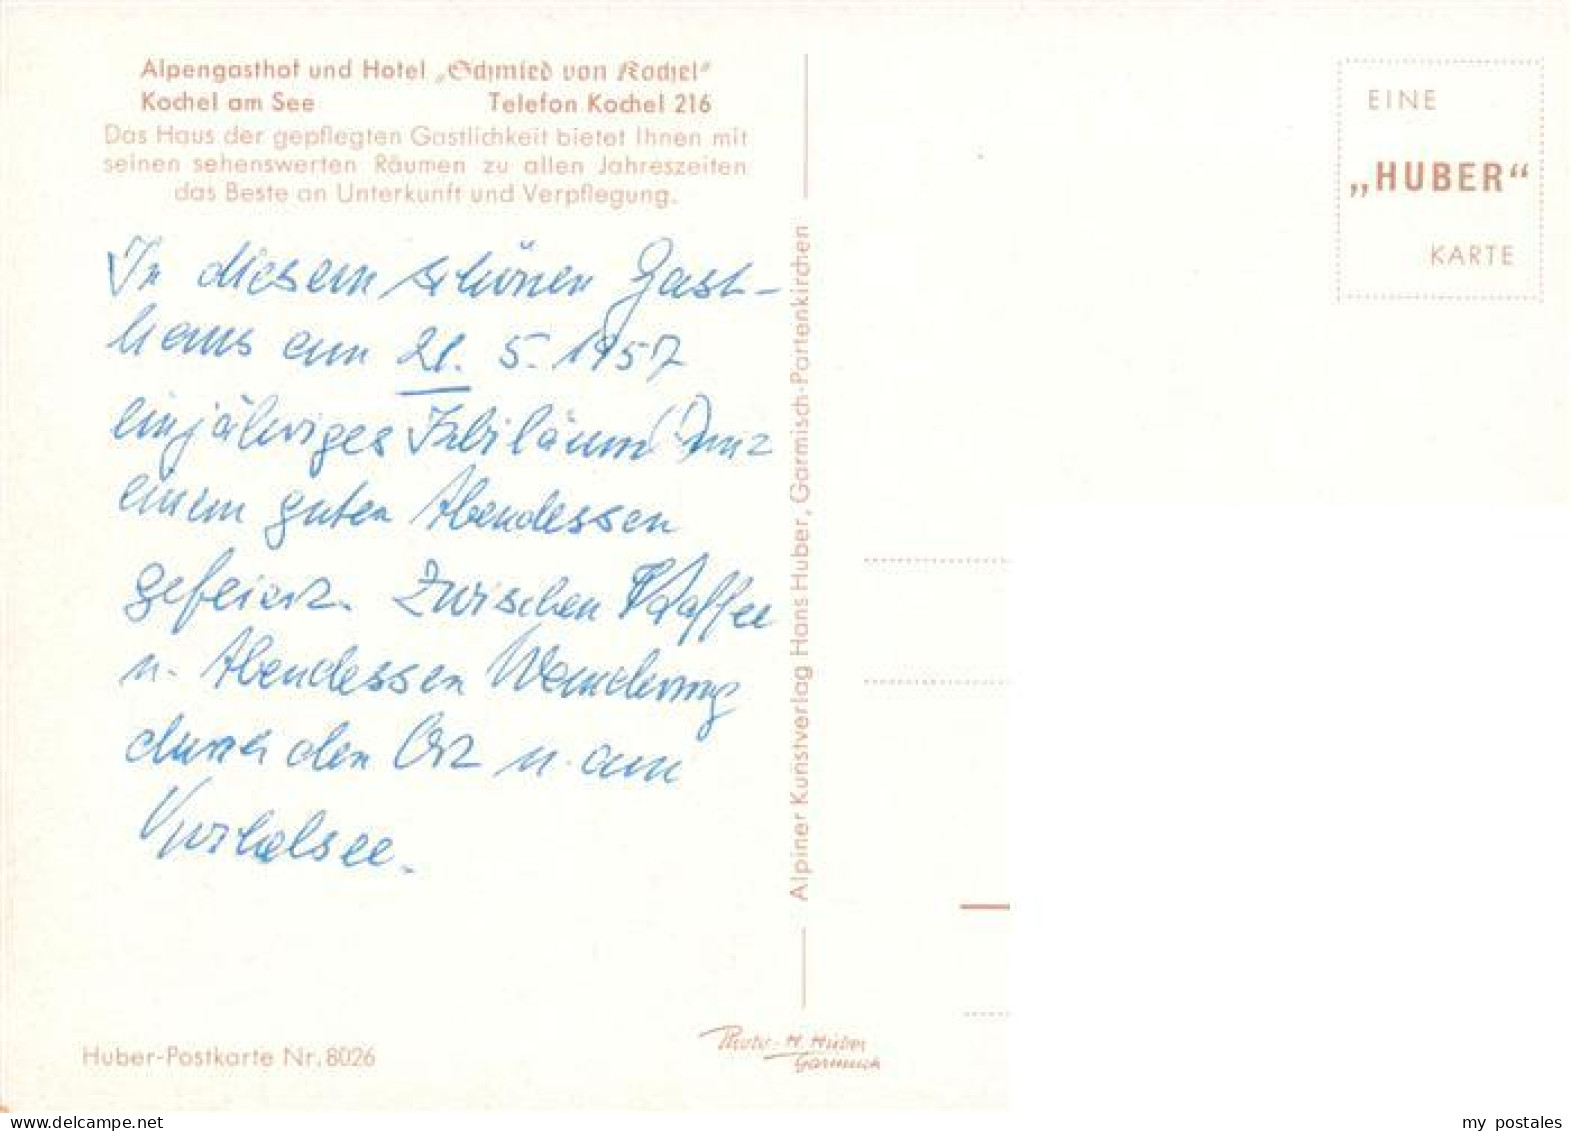 Alpengasthof und Hotel „Schmied von Kochel“
Kochel am See Telefon Kochel 216
Das Haus der gepflegten Gastlichkeit bietet Ihnen mit
seinen sehenswerten Räumen zu allen Jahreszeiten
das Beste an Unterkunft und Verpflegung.
In diesem schönen Gast-
haus am 21. 5. 1957
einjähriges Jubiläum (!) mit
einem guten Abendessen
gefeiert. Zwischen Kaffee
u. Abendessen Wanderung
durch den Ort u. am
Kochelsee.
Huber-Postkarte Nr. 8026
Alpiner Kunstverlag Hans Huber, Garmisch-Partenkirchen
Photo-H. Huber
Garmisch
EINE
„HUBER“
KARTE
my postales